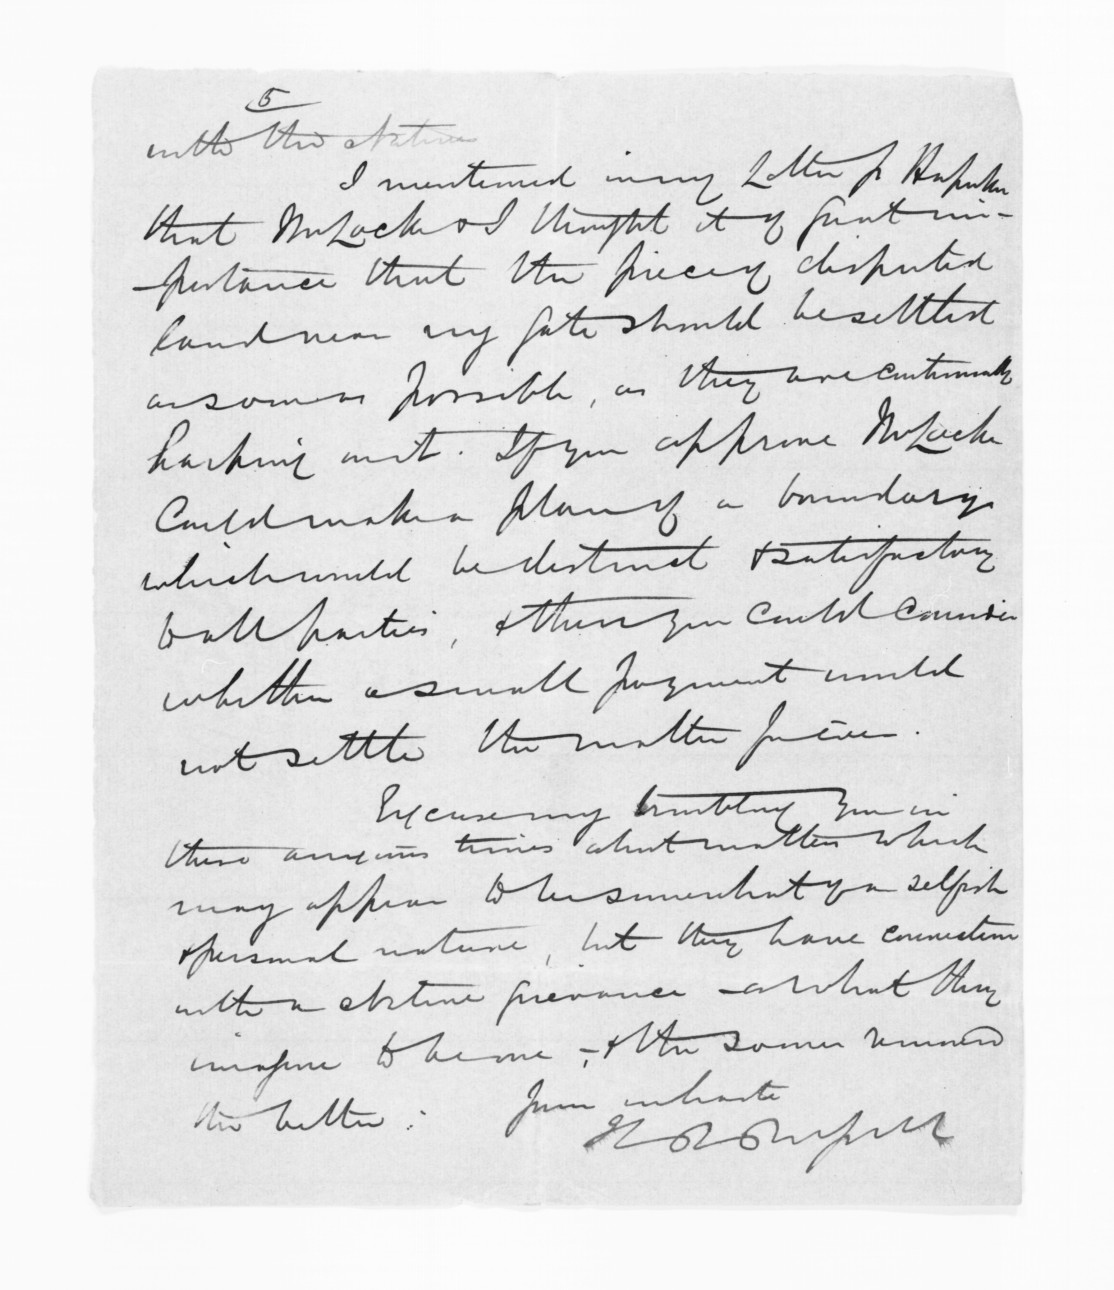 5
with the Natives
I mentioned in my Letter fr Hapuku
that Mr Locke & I thought it of great im-
-portance that the piece of disputed
land near my gate should be settled
as soon as possible, as they are continually
harping on it. If you approve Mr Locke
could make a plan of a boundary
which would be distinct & satisfactory
to all parties, & then you could consider
whether a small payment would
not settle the matter for ever.
Excuse my troubling you in
these anxious times about matters which
may appear to be somewhat of a selfish
& personal nature, but they have connection
with a Native grievance - or what they
imagine to be one -, & the sooner removed
the better:
Yours in haste
H R Russell